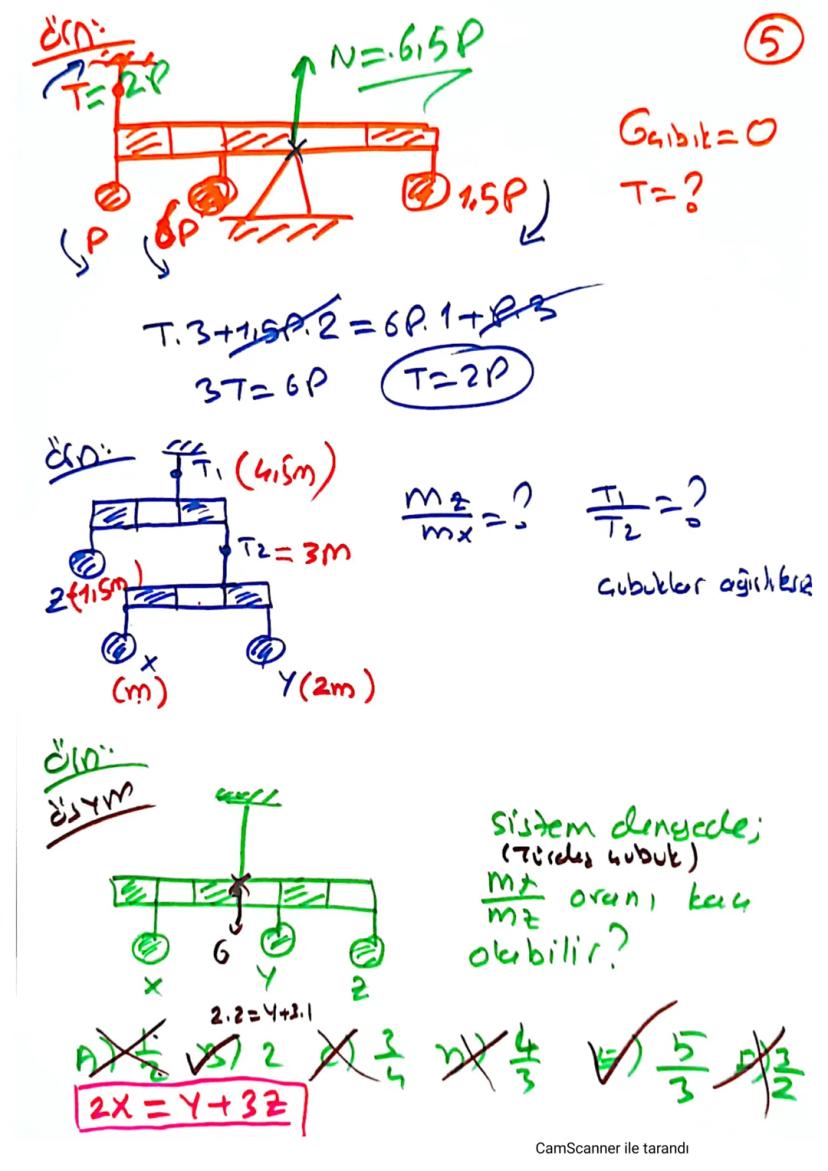 Örn:
5
T = 2P
N = 6,5P
Gçubuk = 0
T = ?
P
6P
1,5P
T.3 + 1,5P.2 = 6P.1 + P.3
3T = 6P
T = 2P
Örn:
T1 (4,5m)
mz/mx = ?
T1/T2 = ?
T2 = 3m
Z (1,5m)
çubuklar ağırlıksız
X
(m)
Y (2m)
Örn:
ÖSYM
sistem dengede;
(Türdeş çubuk)
mx/mz oranı kaç
olabilir?
G
X
Y
Z
2.2 = Y + 3.1
A) 1/2 B) 2 C) 3/4 D) 4/3 E) 5/3 3/2
2X = Y + 3Z
CamScanner ile tarandı